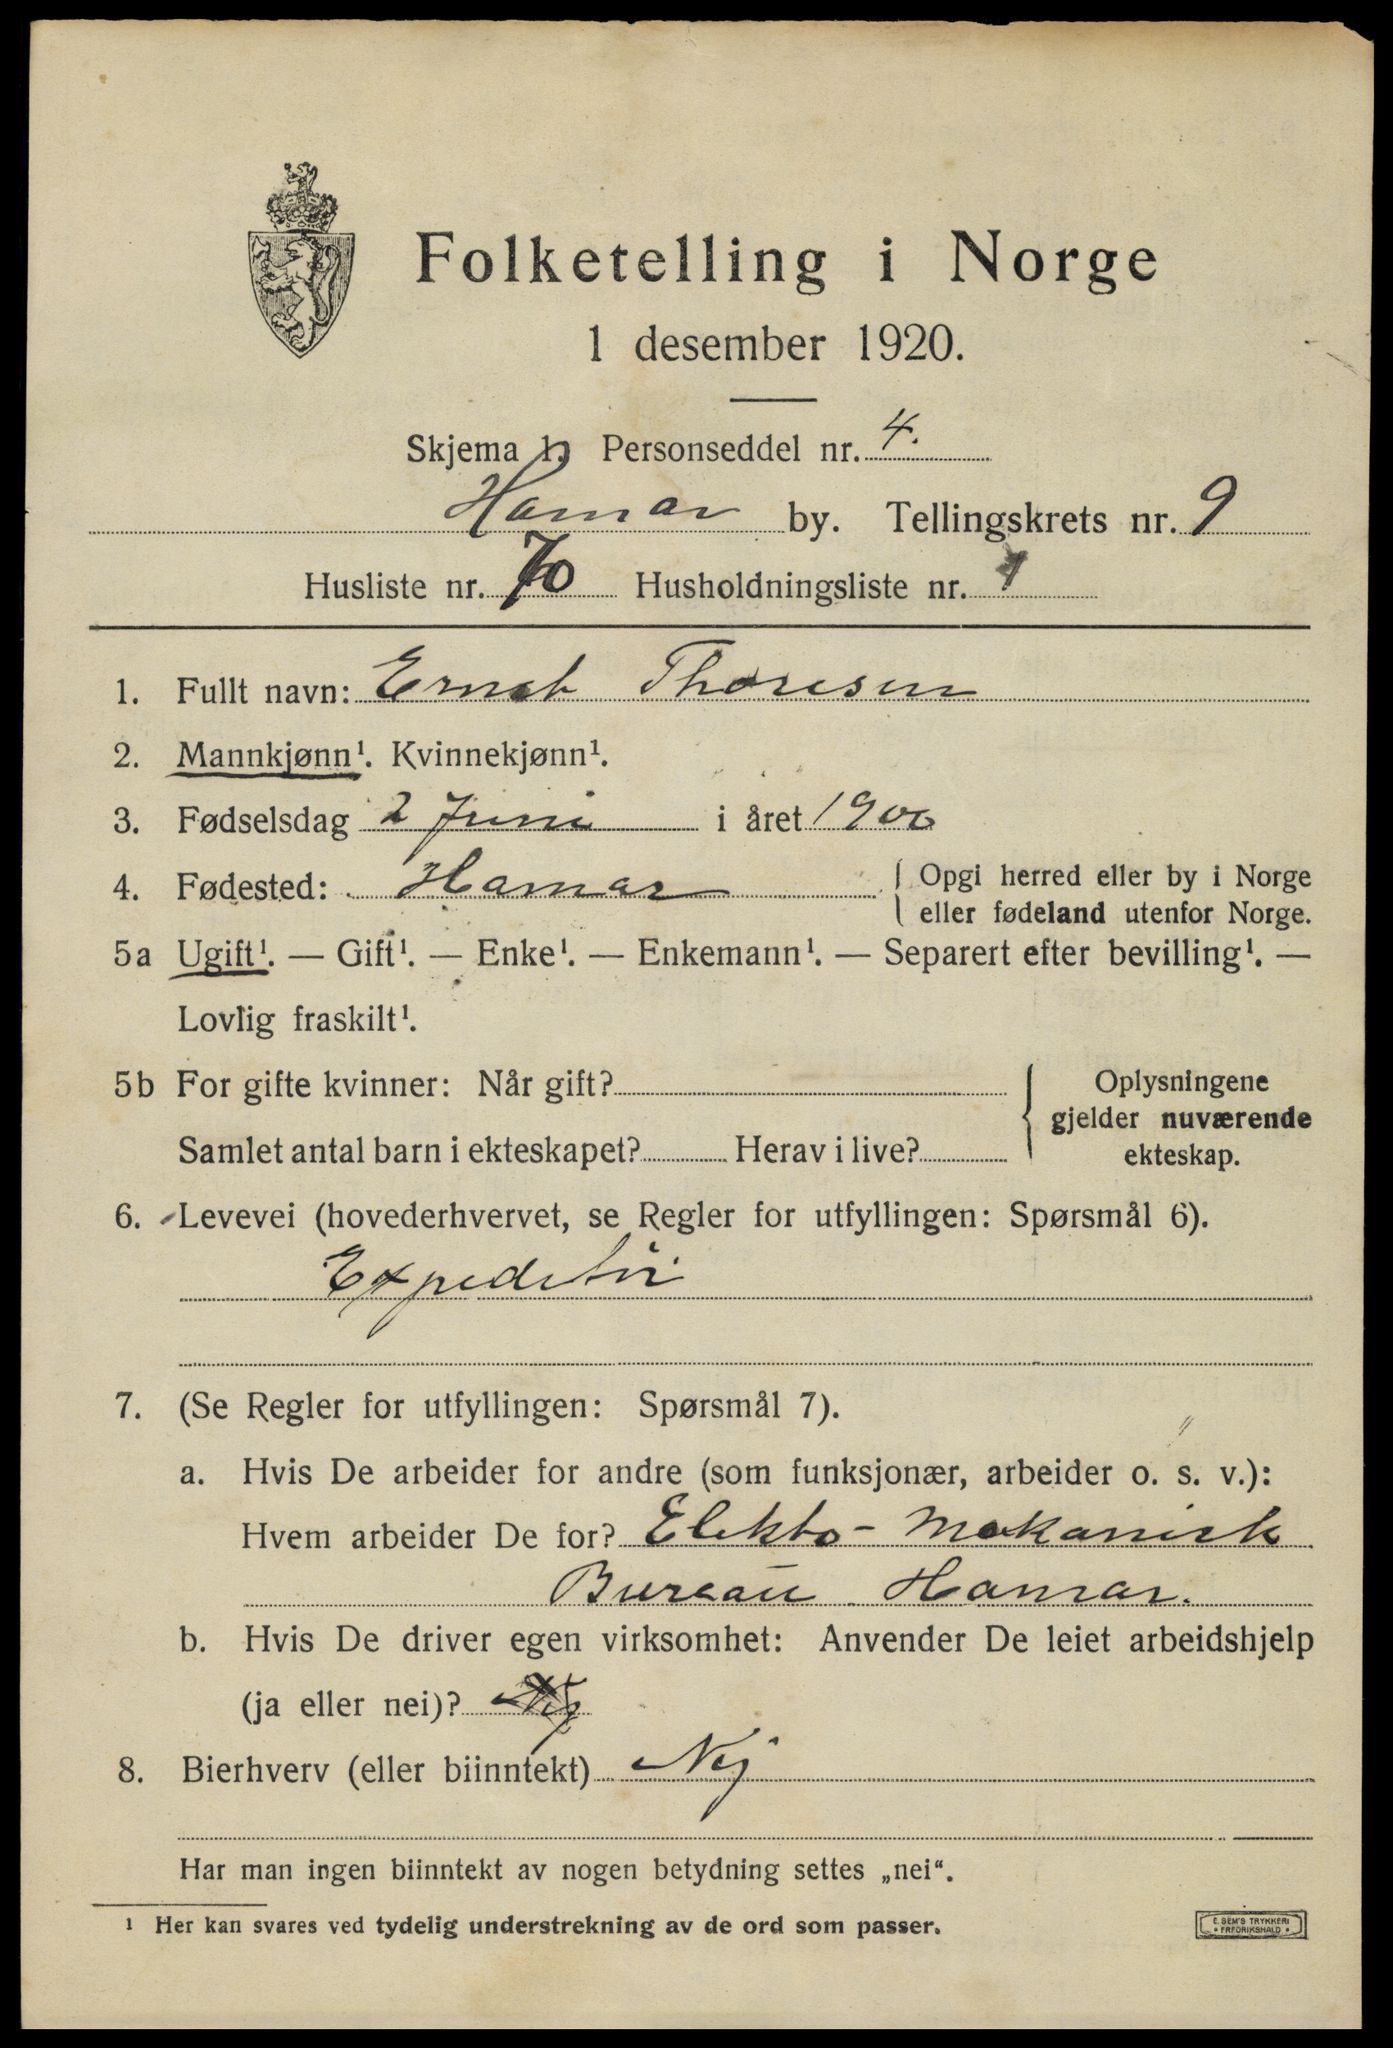 Folketelling i Norge
1 desember 1920.
Skjema 1. Personseddel nr. 4.
Hamar by. Tellingskrets nr. 9
Husliste nr. 70 Husholdningsliste nr. 1
1. Fullt navn: Ernst Thoresen
2. Mannkjønn¹. Kvinnekjønn¹.
3. Fødselsdag 2 Juni i året 1900
4. Fødested: Hamar { Opgi herred eller by i Norge
eller fødeland utenfor Norge.
5a Ugift¹. — Gift¹. — Enke¹. — Enkemann¹. — Separert efter bevilling¹. —
Lovlig fraskilt¹.
5b For gifte kvinner: Når gift?
Samlet antal barn i ekteskapet? Herav i live?
{ Oplysningene
gjelder nuværende
ekteskap.
6. Levevei (hovederhvervet, se Regler for utfyllingen: Spørsmål 6).
Expeditør
7. (Se Regler for utfyllingen: Spørsmål 7).
a. Hvis De arbeider for andre (som funksjonær, arbeider o. s. v.):
Hvem arbeider De for? Elekto-Mekanisk
Bureau Hamar.
b. Hvis De driver egen virksomhet: Anvender De leiet arbeidshjelp
(ja eller nei)?
8. Bierhverv (eller biinntekt) Nej
Har man ingen biinntekt av nogen betydning settes „nei“.
¹ Her kan svares ved tydelig understrekning av de ord som passer.
E. SEM'S TRYKKERI
• FREDRIKSHALD •